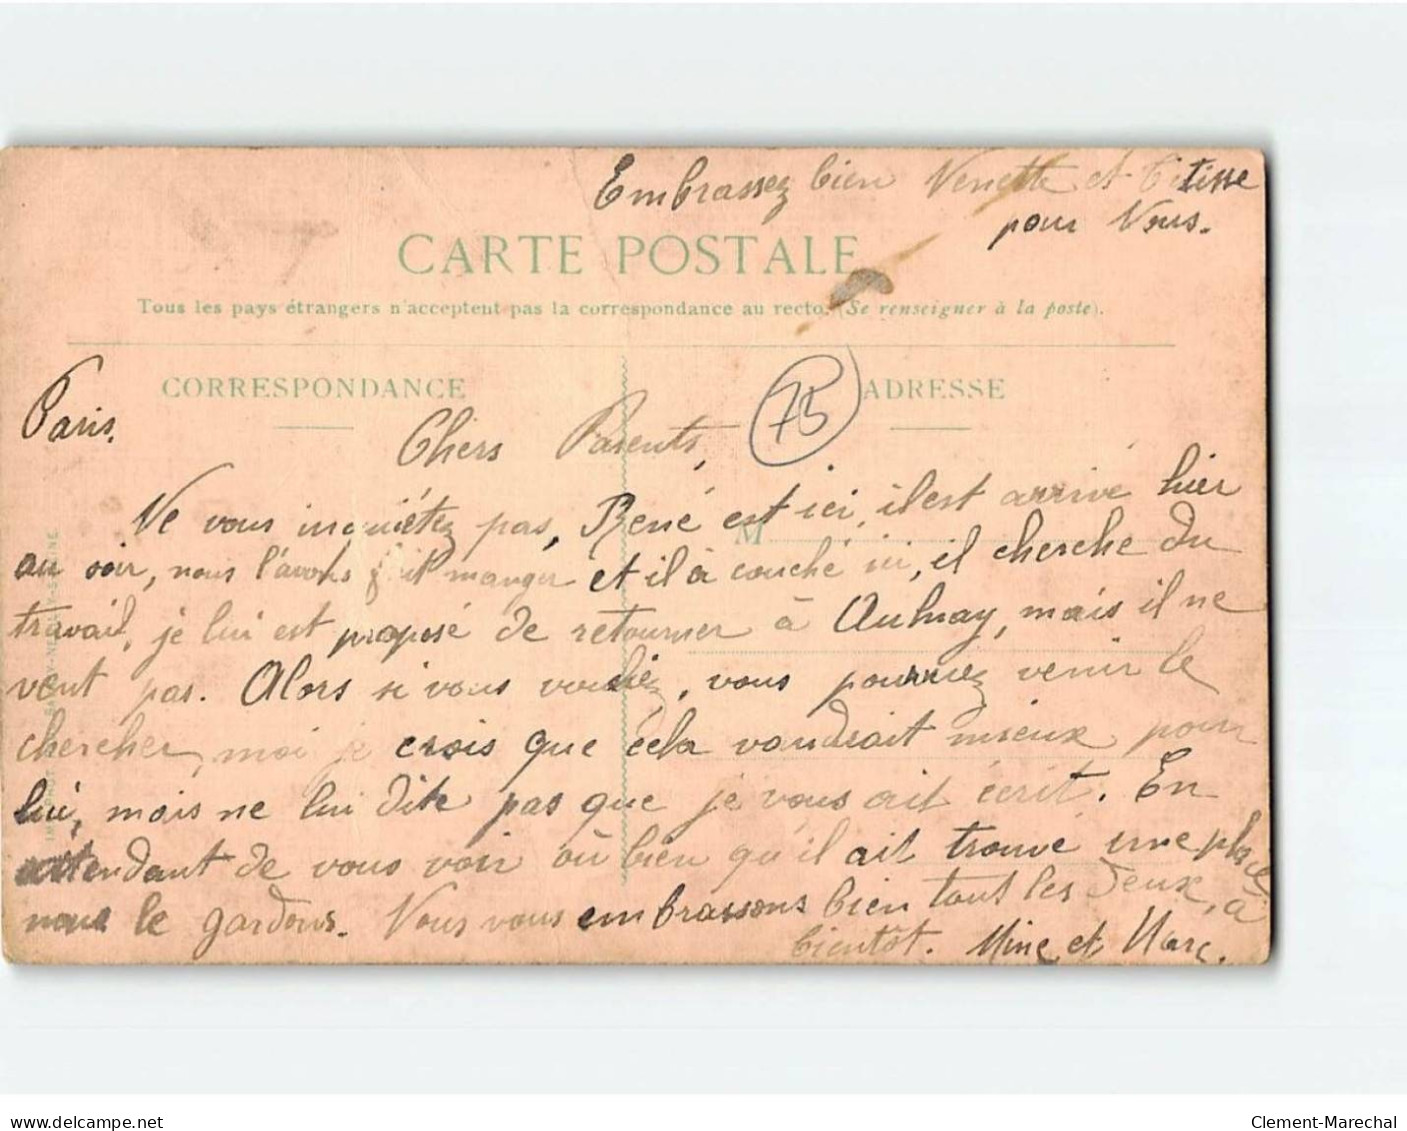 Embrassez bien Nenette et Titisse
pour Nous.
CARTE POSTALE
Tous les pays étrangers n'acceptent pas la correspondance au recto. (Se renseigner à la poste).
CORRESPONDANCE
75
ADRESSE
Paris.
Chers Parents,
Ne vous inquiétez pas, René est ici, il est arrivé hier
M
au soir, nous l'avons fait manger et il à couché ici, il cherche du
travail, je lui est proposé de retourner à Aulnay, mais il ne
veut pas. Alors si vous voulez, vous pourriez venir le
chercher, moi je crois que cela vaudrait mieux pour
lui, mais ne lui dite pas que je vous ait écrit. En
attendant de vous voir où bien qu'il ait trouvé une place
nous le gardons. Nous vous embrassons bien tout les deux, à
bientôt. Mine et Marc.
delcampe.net
Clement-Marechal